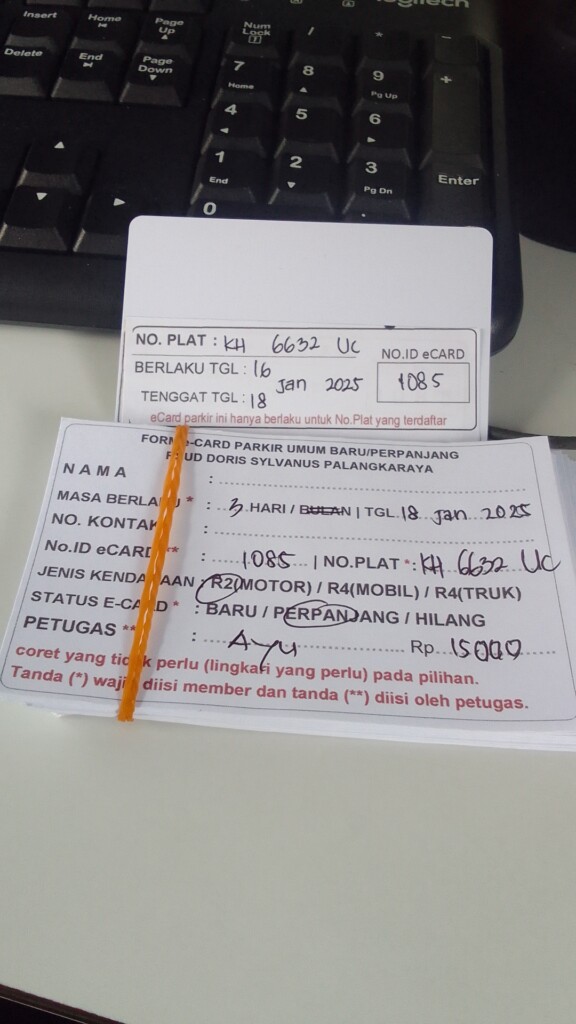 Logitech
Insert Home Page Up Num Lock / * -
Delete End Page Down 7 Home 8 9 Pg Up +
4 5 6
1 End 2 3 Pg Dn Enter
0 .
NO. PLAT : KH 6632 UC
NO.ID eCARD
BERLAKU TGL : 16
1085
Jan 2025
TENGGAT TGL : 18
eCard parkir ini hanya berlaku untuk No.Plat yang terdaftar
FORM e-CARD PARKIR UMUM BARU/PERPANJANG
UD DORIS SYLVANUS PALANGKARAYA
NAMA :
MASA BERLAKU * : 3 HARI / BULAN | TGL. 18 Jan 2025
NO. KONTAK :
No.ID eCARD ** : 1085 | NO.PLAT *: KH 6632 UC
JENIS KENDARAAN : R2(MOTOR) / R4(MOBIL) / R4(TRUK)
STATUS E-CARD * : BARU / PERPANJANG / HILANG
PETUGAS ** : Ayu Rp 15000
coret yang tidak perlu (lingkari yang perlu) pada pilihan.
Tanda (*) wajib diisi member dan tanda (**) diisi oleh petugas.